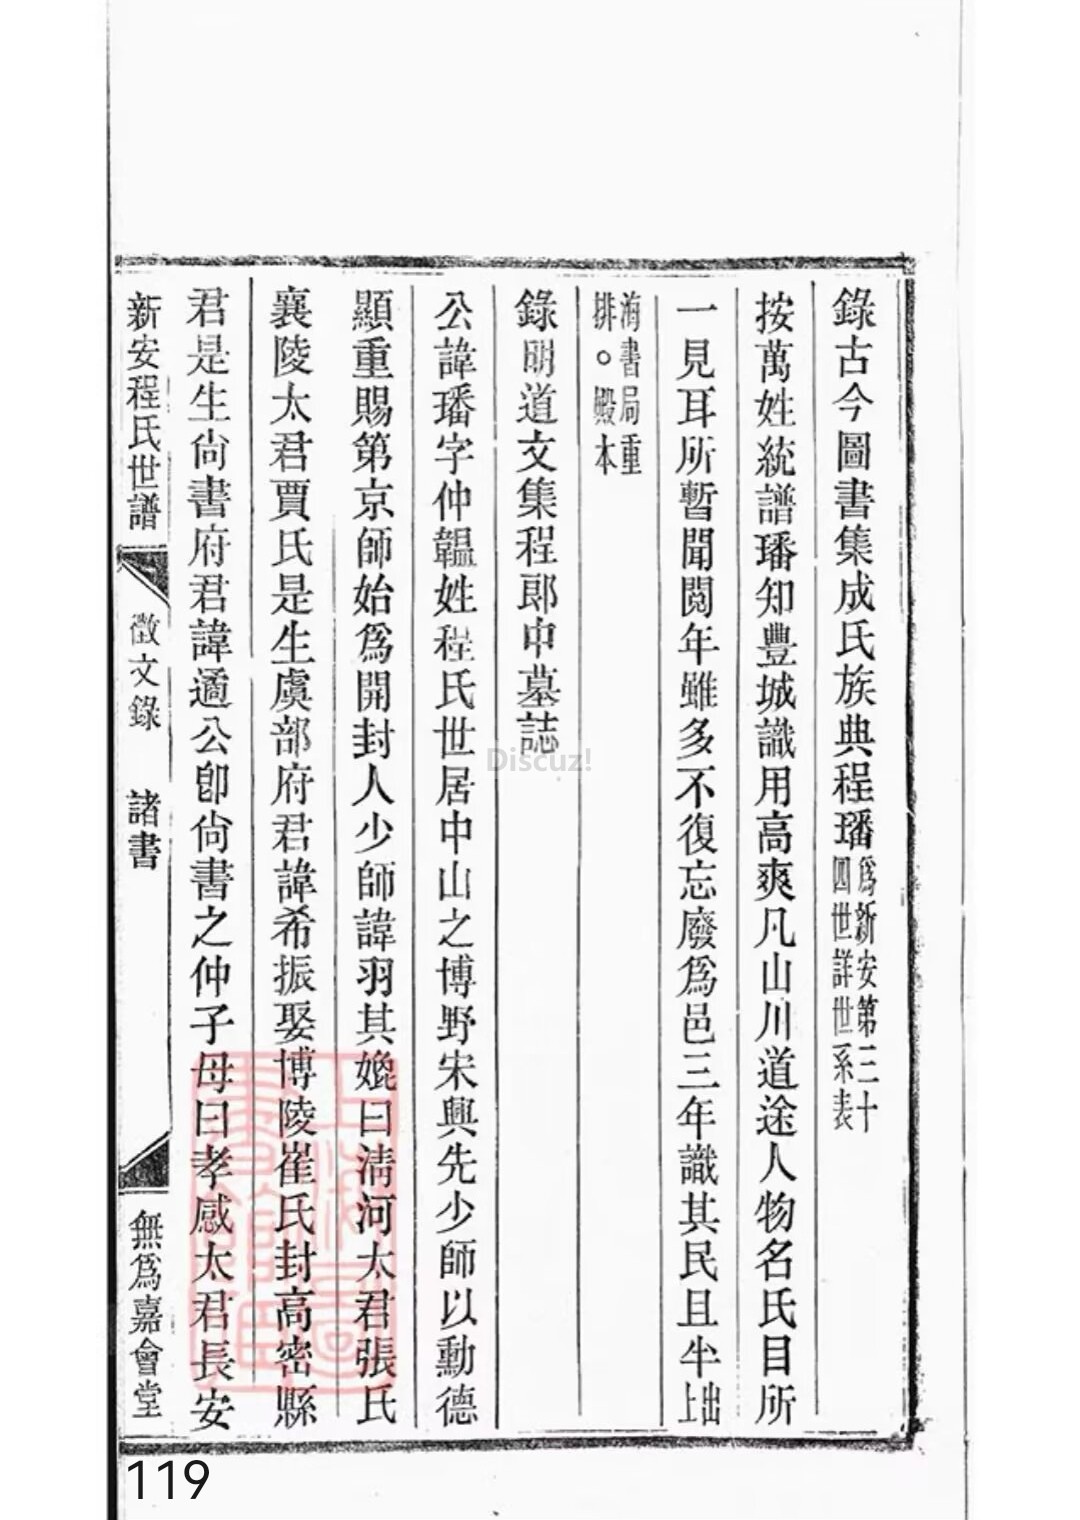 錄古今圖書集成氏族典程璠爲新安第三十四世詳世系表
按萬姓統譜璠知豐城識用高爽凡山川道途人物名氏目所
一見耳所暫聞閱年雖多不復忘廢爲邑三年識其民且半上海書局重排。殿本
錄明道文集程郎中墓誌
公諱璠字仲韞姓程氏世居中山之博野宋興先少師以勳德
顯重賜第京師始爲開封人少師諱羽其娩曰淸河太君張氏
襄陵太君賈氏是生虞部府君諱希振娶博陵崔氏封高密縣
君是生尙書府君諱遹公卽尙書之仲子母曰孝感太君長安
新安程氏世譜 徵文錄 諸書 無爲嘉會堂
Discuz!
119